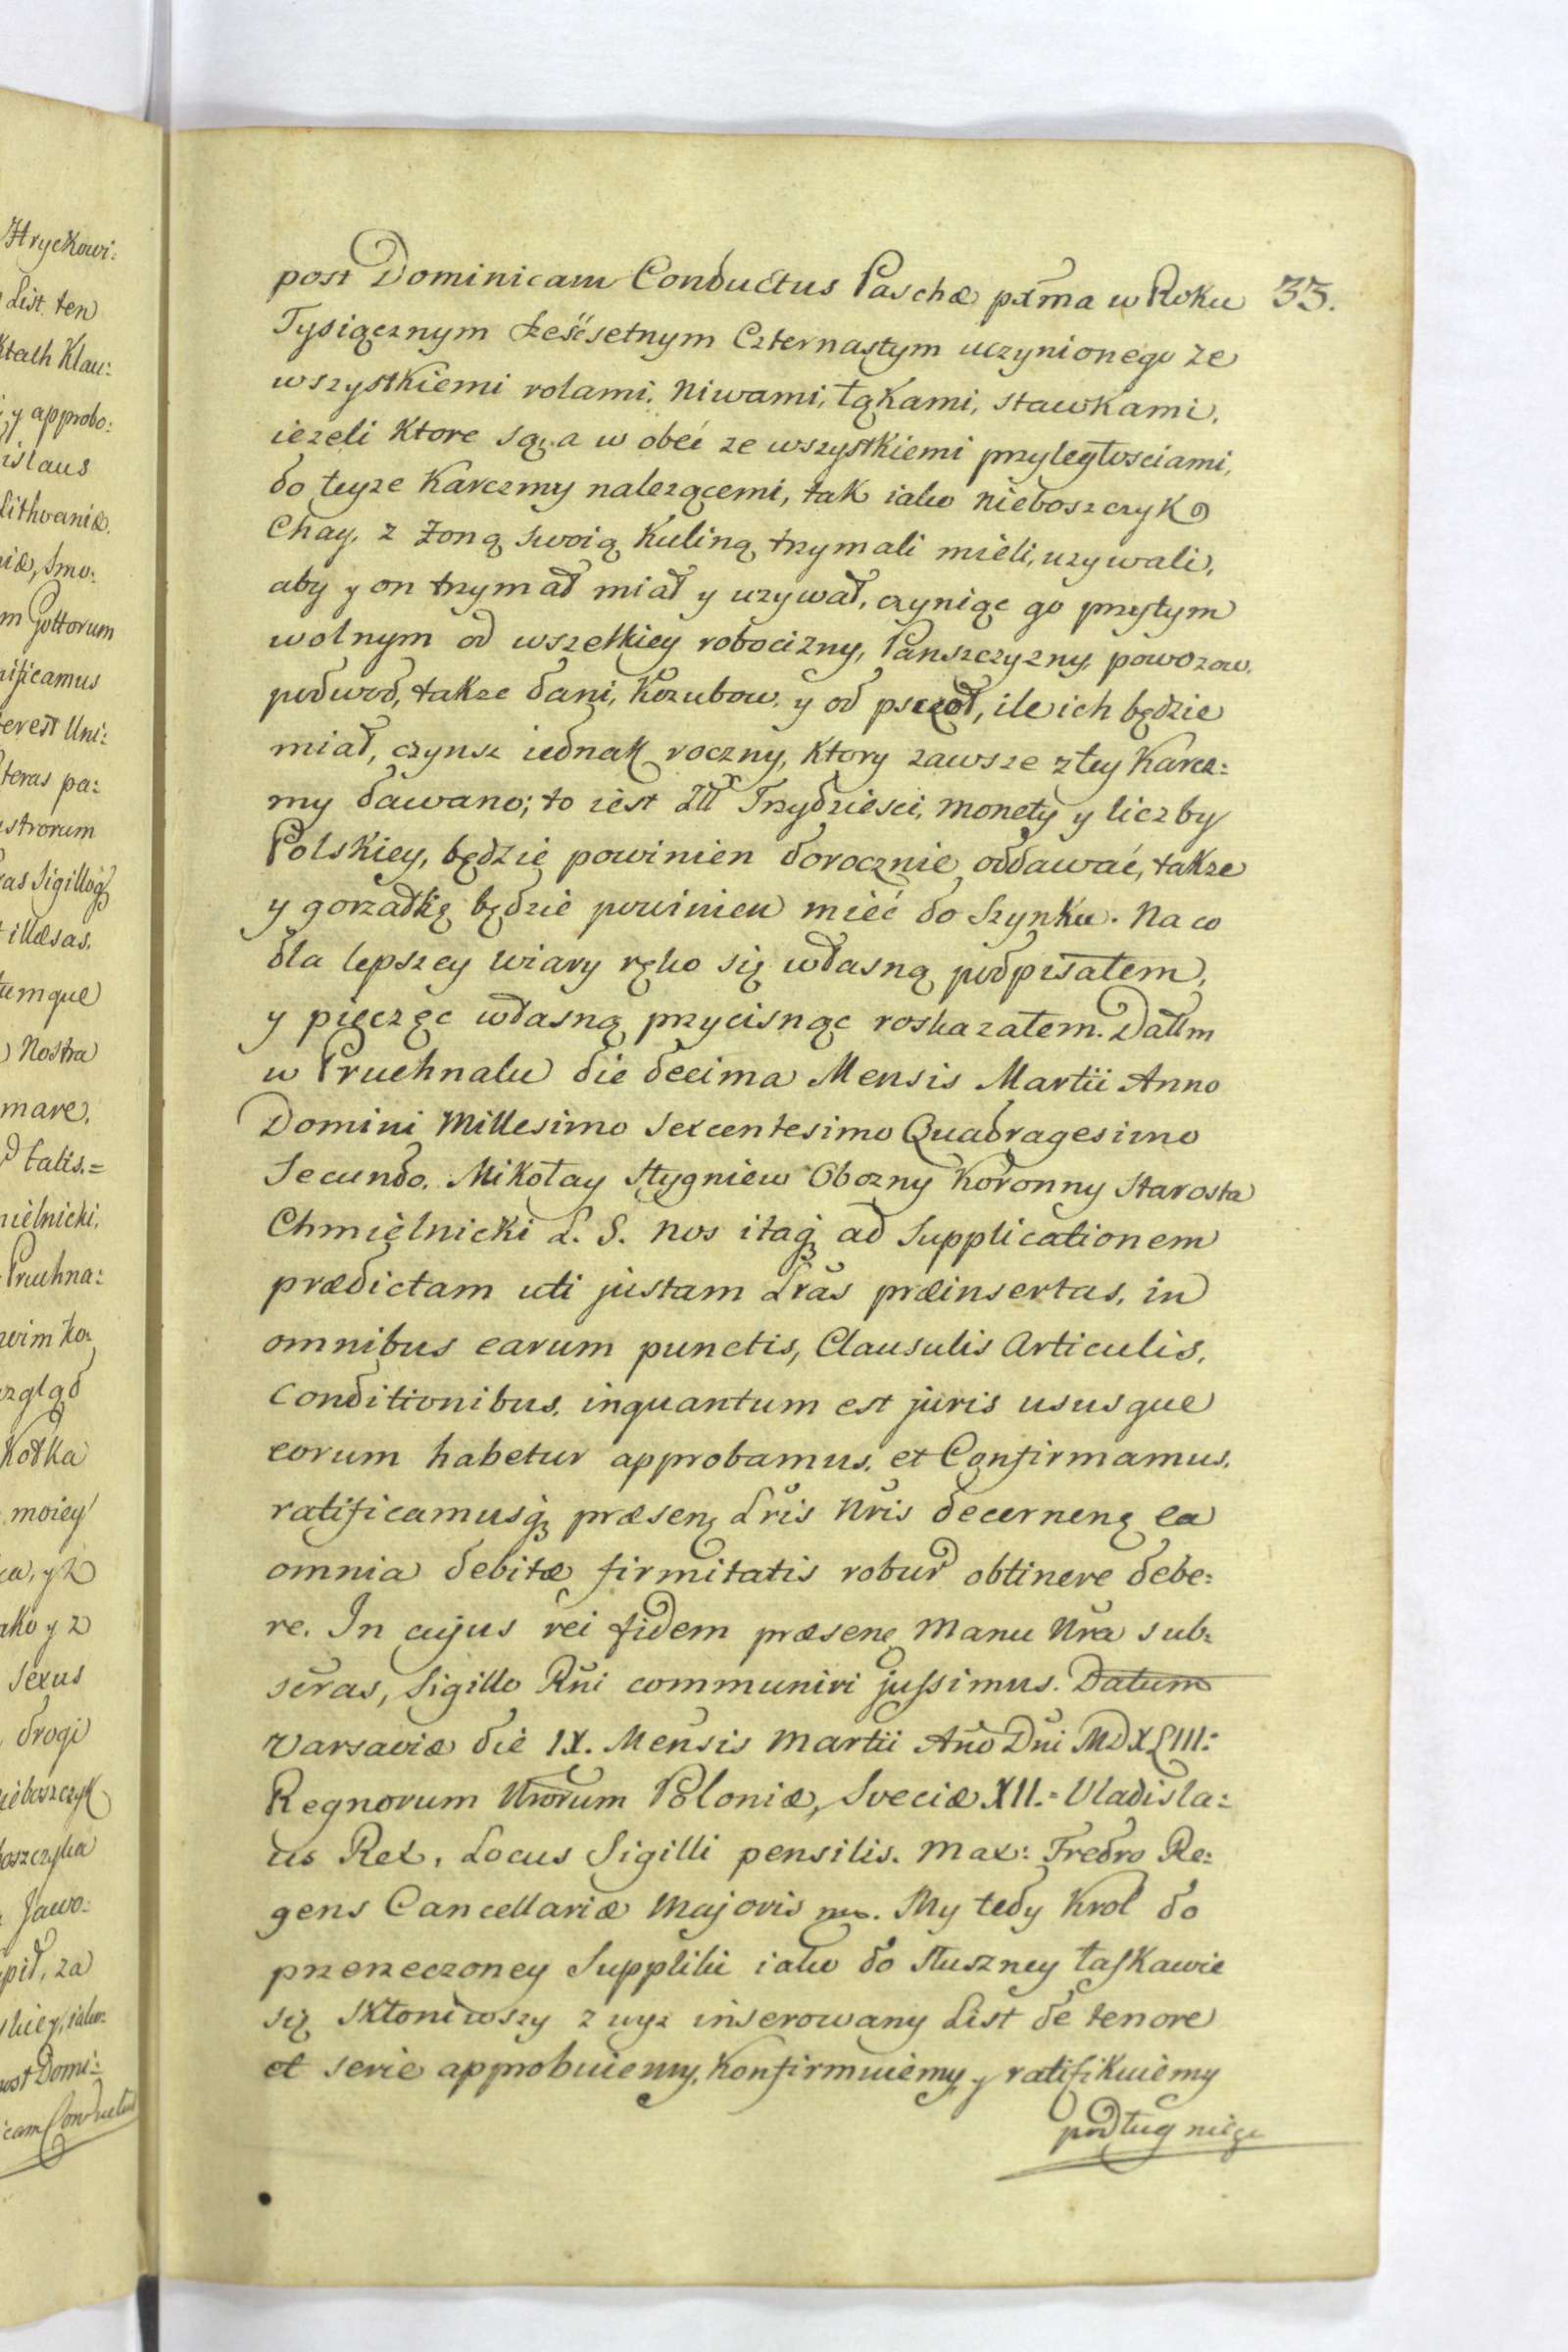 Hryckowi:
List ten
ktach Klau:
y approbo:
islaus
Lithvaniæ.
iæ, Smo:
m Gottorum
nificamus
terest Uni:
teras pa:
strorum
ras Sigilloq
illæsas.
tumque
Nostra
mare.
talis.=
mielnicki.
Pruchna:
zgląd
Kotka
moiey
ako y z
Sexus
drogi
nieboszczyk
oszczyka
Jawo:
pił, za
ost Domi:
icam Conductus
33.
post Dominicam Conductus Paschæ pxma w Roku
Tysiącznym Sześćsetnym Czternastym uczynionego ze
wszystkiemi rolami, Niwami, łąkami, stawkami,
iezeli Ktore są, a w obec ze wszystkiemi przyległosciami,
do teyze Karczmy nalezącemi, tak iako nieboszczyk
Chay, z Zoną swoią Kuliną trzymali mieli, uzywali,
aby y on trzymał miał y uzywał, czyniąc go przytym
wolnym od wszelkiey robocizny, Panszczyzny, powozow,
podwod, takze dani, Kozubow, y od pszczoł, ile ich będzie
miał, czynsz iednak roczny, Ktory zawsze z tey Karcz:
my dawano; to iest Złł Trzydziesci, monety y liczby
Polskiey, będzie powinien dorocznie oddawać, takze
y gorzałkę będzie powinien mieć do Szynku. Na co
dla lepszey wiary ręko się własną podpisałem,
y pięczęc własną przycisnąc roskazałem. Dattm
w Pruchnalu die decima Mensis Martii Anno
Domini Millesimo Sexcentesimo Quadragesimo
Secundo. Mikołay Stygniew Obozny Koronny Starosta
Chmielnicki L. S. Nos itaq ad Supplicationem
prædictam uti justam Lras præinsertas, in
omnibus earum punctis, Clausulis Articulis,
Conditionibus, inquantum est juris ususque
eorum habetur approbamus, et Confirmamus,
ratificamusq præsen Lris Nris decernen ea
omnia debitæ firmitatis robur obtinere debe:
re. In cujus rei fidem præsen Manu Nra sub:
scras, Sigillo Rni communiri jussimus. Datum
Varsaviæ die IX. Mensis Martii Ano Dni MDXLIII:
Regnorum Nrorum Poloniæ, Sveciæ XII.= Vladisla:
us Rex, Locus Sigilli pensilis. Max: Fredro Re:
gens Cancellariæ Majoris mp. My tedy Krol do
przerzeczoney Suppliki iako do słuszney łaskawie
się skłoniwszy z wyz inserowany List de tenore
et serie approbuiemy, Konfirmuiemy, y ratifikuiemy
podług niego